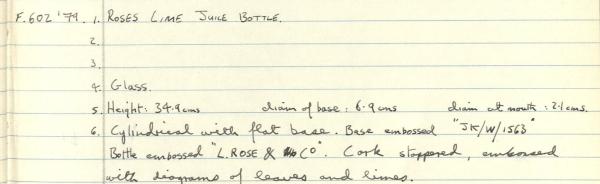 F.602 '79. 1. ROSES LIME JUICE BOTTLE.
2.
3.
4. Glass.
5. Height: 34.9cms diam of base: 6.9cms diam at mouth: 2.1cms.
6. Cylindrical with flat base. Base embossed "JK/W/1563"
Bottle embossed "L.ROSE & CO". Cork stoppered, embossed
with diagrams of leaves and limes.